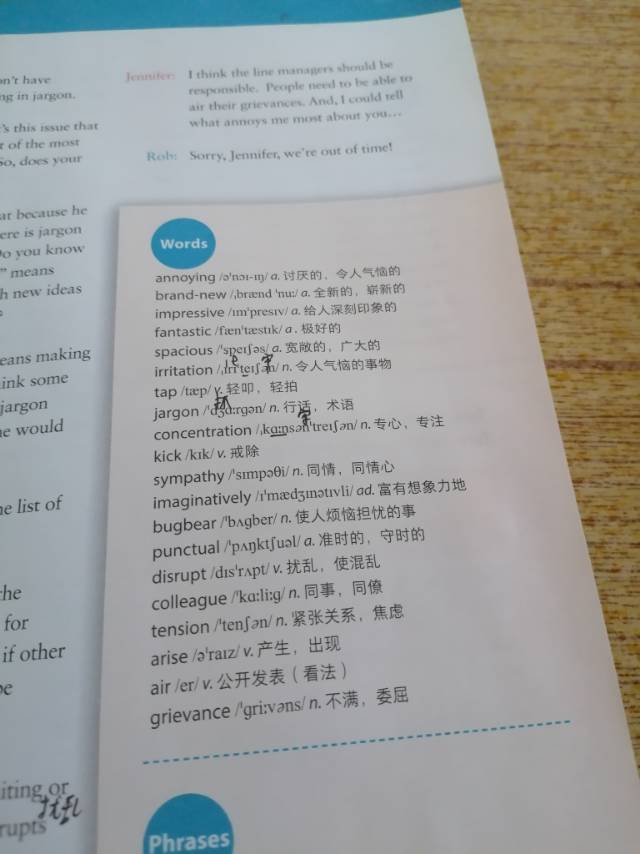 n't have
ng in jargon.
's this issue that
t of the most
So, does your
at because he
ere is jargon
Do you know
" means
h new ideas
eans making
ink some
jargon
e would
e list of
the
for
if other
be
iting or
扰乱
rupts
Jennifer: I think the line managers should be
responsible. People need to be able to
air their grievances. And, I could tell
what annoys me most about you…
Rob: Sorry, Jennifer, we're out of time!
Words
annoying /əˈnɔɪ-ɪŋ/ a. 讨厌的，令人气恼的
brand-new /ˌbrænd ˈnuː/ a. 全新的，崭新的
impressive /ɪmˈpresɪv/ a. 给人深刻印象的
fantastic /fænˈtæstɪk/ a. 极好的
spacious /ˈspeɪʃəs/ a. 宽敞的，广大的
irritation /ˌɪrɪˈteɪʃən/ n. 令人气恼的事物
tap /tæp/ v. 轻叩，轻拍
jargon /ˈdʒɑːrgən/ n. 行话，术语
concentration /ˌkɑːnsənˈtreɪʃən/ n. 专心，专注
kick /kɪk/ v. 戒除
sympathy /ˈsɪmpəθi/ n. 同情，同情心
imaginatively /ɪˈmædʒɪnətɪvli/ ad. 富有想象力地
bugbear /ˈbʌgber/ n. 使人烦恼担忧的事
punctual /ˈpʌŋktʃuəl/ a. 准时的，守时的
disrupt /dɪsˈrʌpt/ v. 扰乱，使混乱
colleague /ˈkɑːliːg/ n. 同事，同僚
tension /ˈtenʃən/ n. 紧张关系，焦虑
arise /əˈraɪz/ v. 产生，出现
air /er/ v. 公开发表（看法）
grievance /ˈgriːvəns/ n. 不满，委屈
Phrases